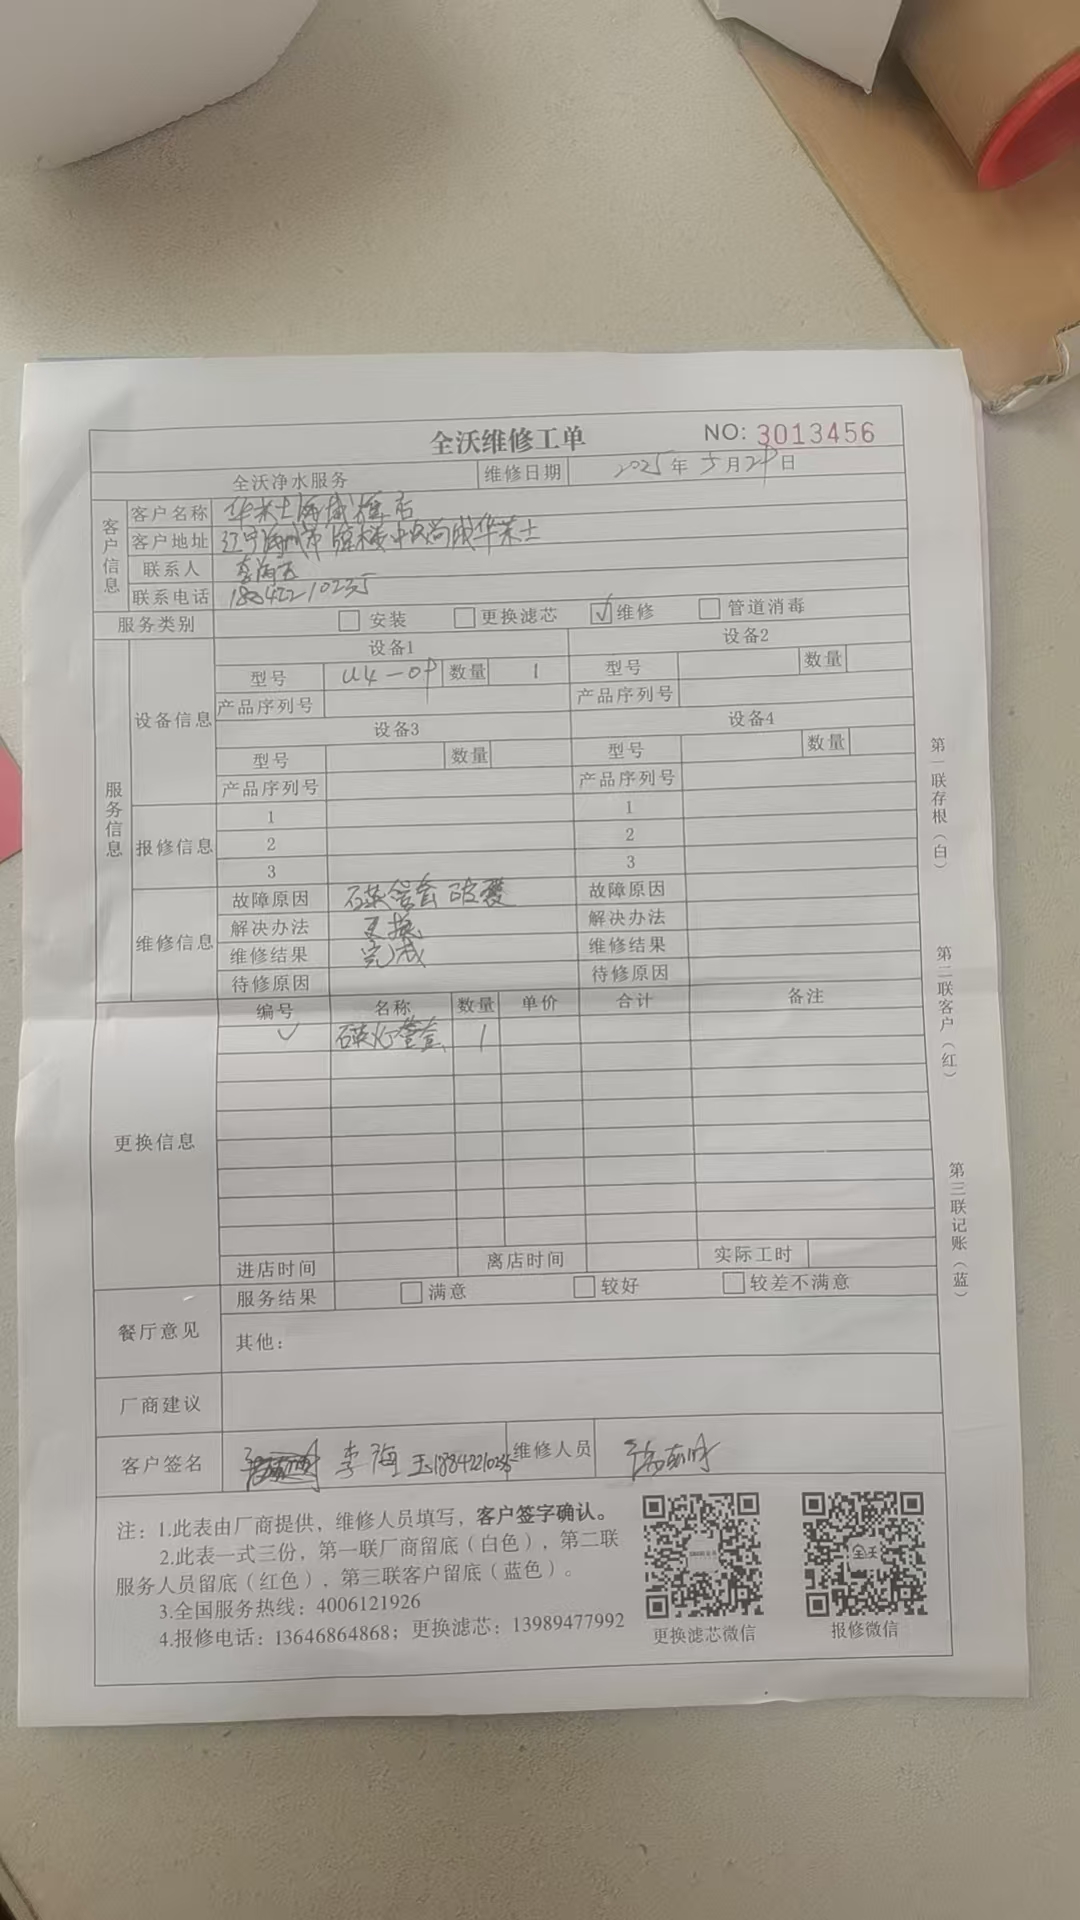 全沃维修工单 NO: 3013456
全沃净水服务 维修日期 2025年5月29日
客户信息
客户名称 华莱士海城
客户地址 辽宁海城市 中央尚城华莱士
联系人 李海玉
联系电话 18842210235
服务类别 安装 更换滤芯 √ 维修 管道消毒
服务信息
设备信息
设备1 设备2
型号 U4-0P 数量 1 型号 数量
产品序列号 产品序列号
设备3 设备4
型号 数量 型号 数量
产品序列号 产品序列号
报修信息
1 1
2 2
3 3
维修信息
故障原因 石英管套破裂 故障原因
解决办法 更换 解决办法
维修结果 完成 维修结果
待修原因 待修原因
更换信息
编号 名称 数量 单价 合计 备注
√ 石英灯管套 1
进店时间 离店时间 实际工时
餐厅意见
服务结果 满意 较好 较差不满意
其他：
厂商建议
客户签名 李海玉18842210235 维修人员
注：1.此表由厂商提供，维修人员填写，客户签字确认。
2.此表一式三份，第一联厂商留底（白色），第二联
服务人员留底（红色），第三联客户留底（蓝色）。
3.全国服务热线：4006121926
4.报修电话：13646864868；更换滤芯：13989477992
更换滤芯微信 报修微信
全沃
第一联存根（白）
第二联客户（红）
第三联记账（蓝）